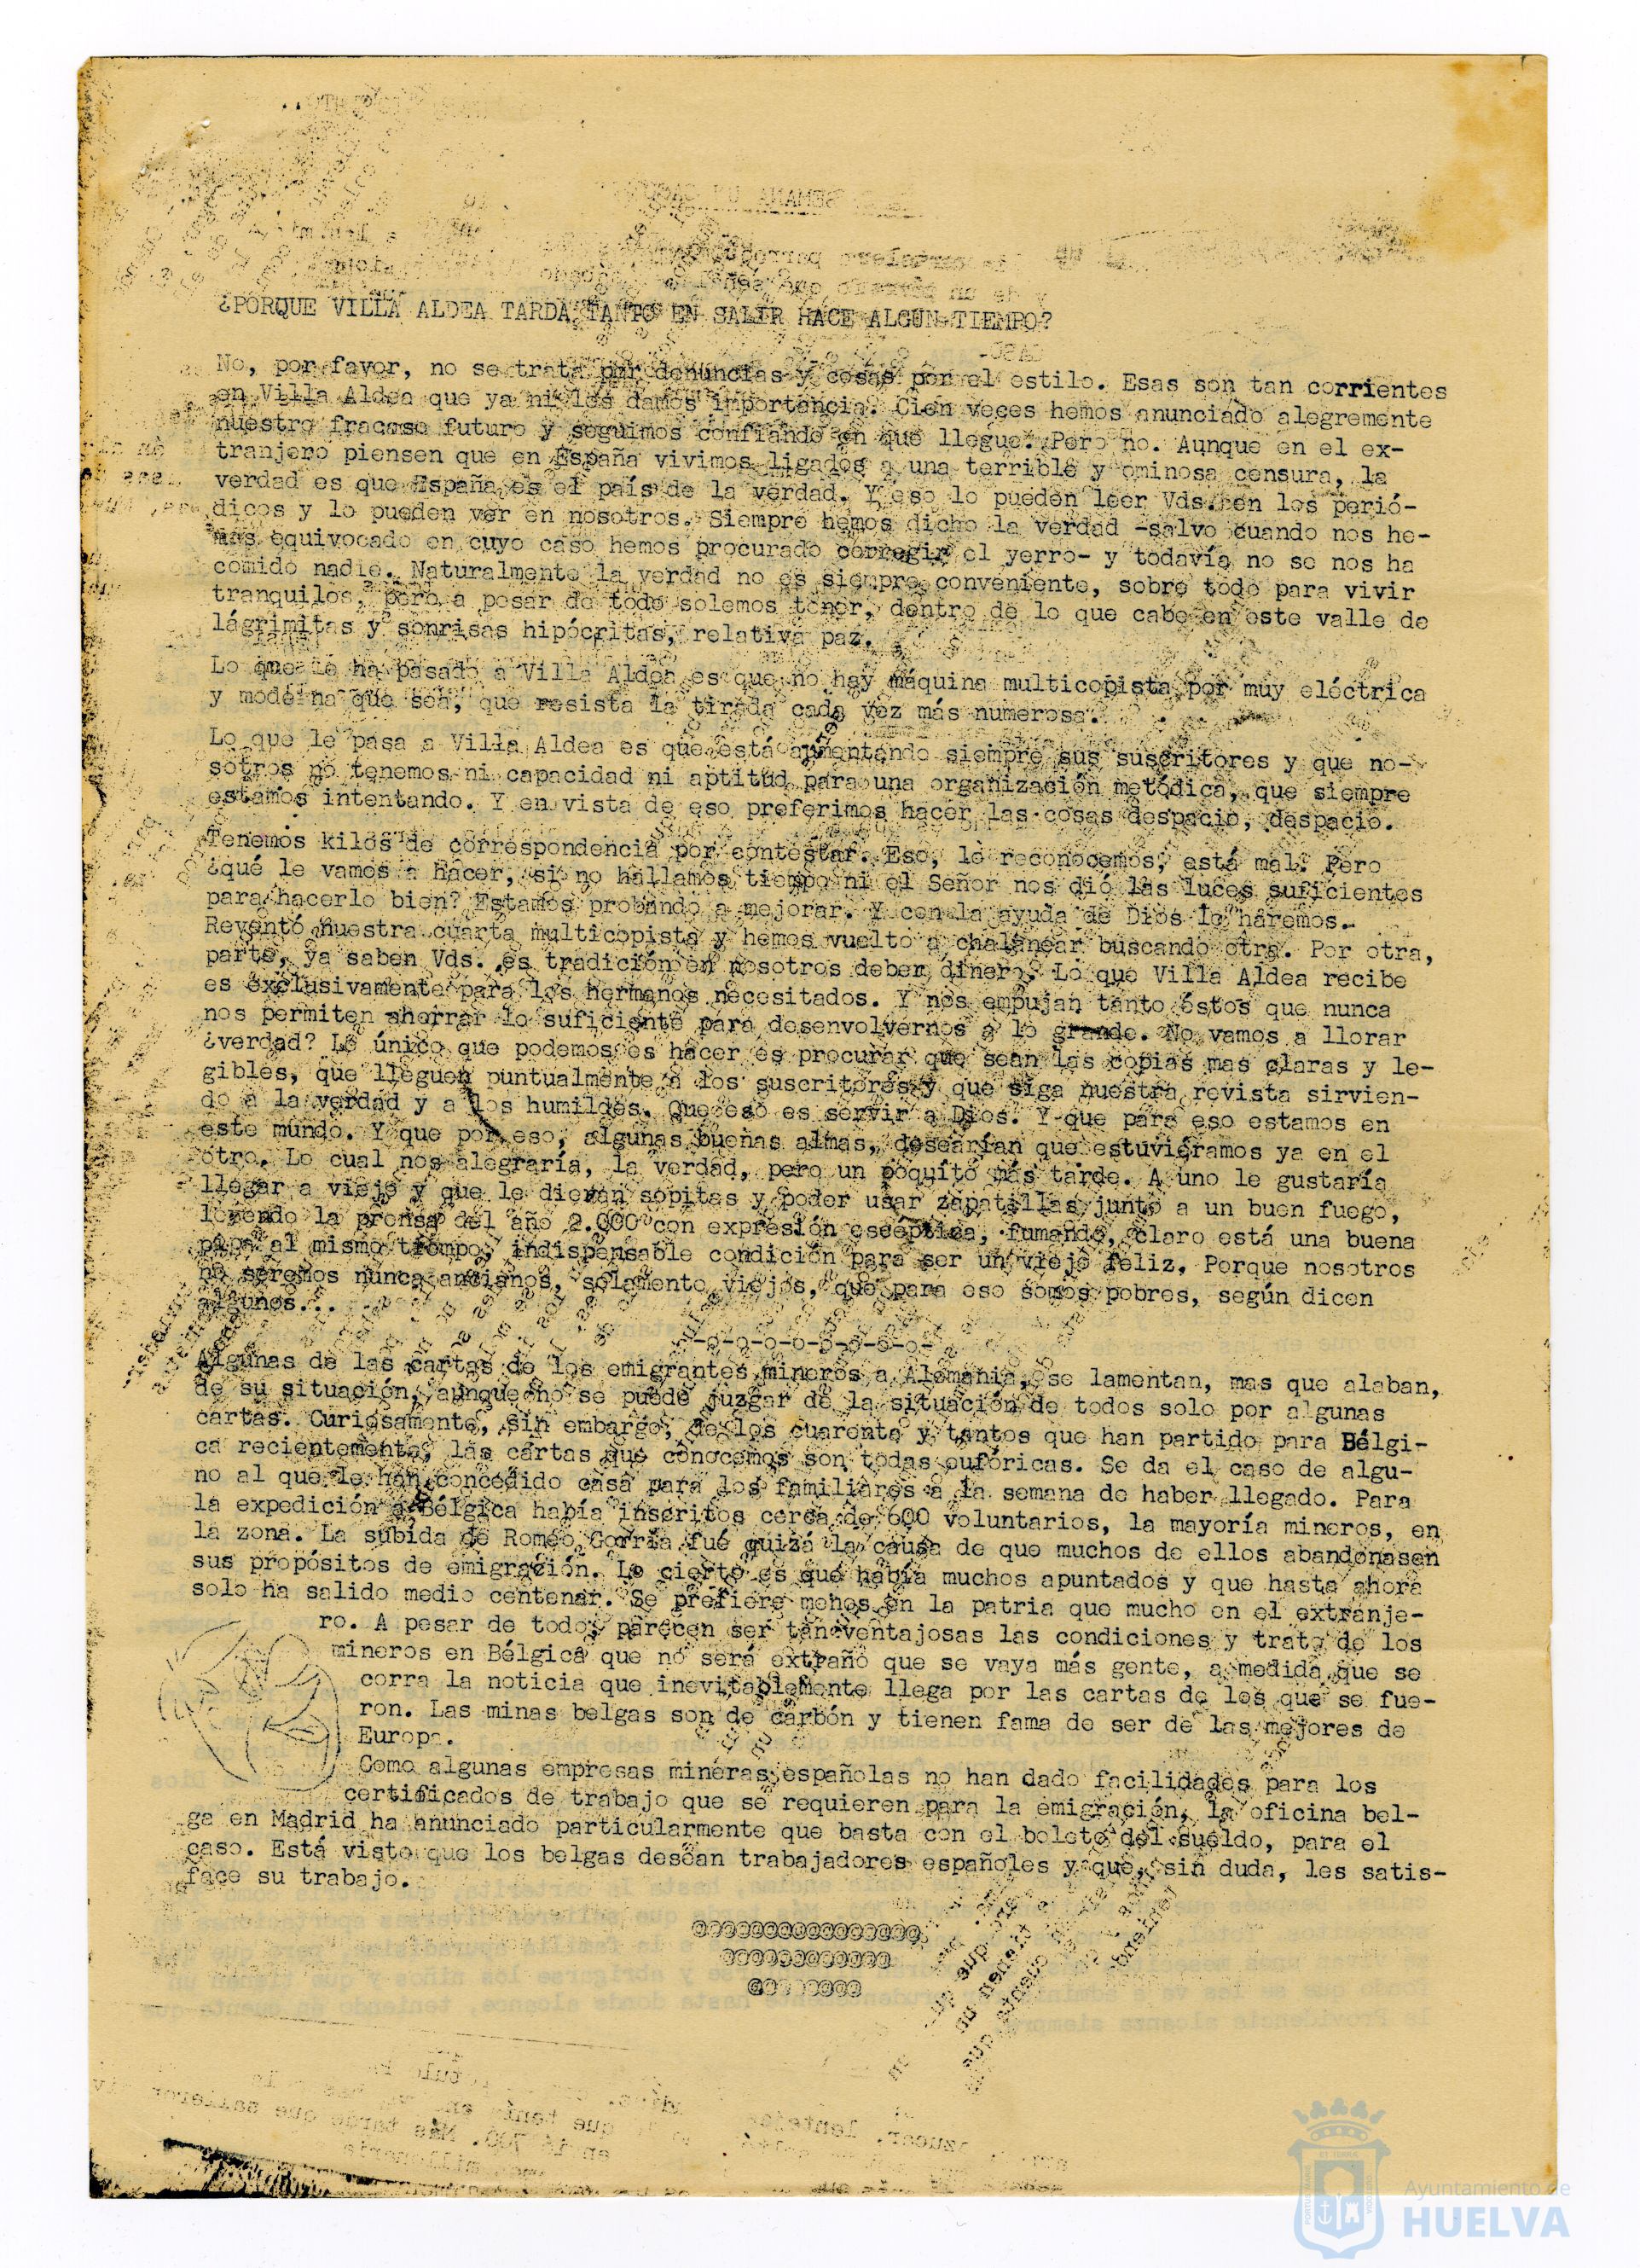 ¿PORQUE VILLA ALDEA TARDA TANTO EN SALIR HACE ALGUN TIEMPO?
No, por favor, no se trata por denuncias y cosas por el estilo. Esas son tan corrientes
en Villa Aldea que ya ni les damos importancia. Cien veces hemos anunciado alegremente
nuestro fracaso futuro y seguimos confiando en que llegue. Pero no. Aunque en el ex-
tranjero piensen que en España vivimos ligados a una terrible y ominosa censura, la
verdad es que España es el país de la verdad. Y eso lo pueden leer Vds. en los perió-
dicos y lo pueden ver en nosotros. Siempre hemos dicho la verdad -salvo cuando nos he-
mos equivocado en cuyo caso hemos procurado corregir el yerro- y todavía no se nos ha
comido nadie. Naturalmente la verdad no es siempre conveniente, sobre todo para vivir
tranquilos, pero a pesar de todo solemos tener, dentro de lo que cabe en este valle de
lágrimitas y sonrisas hipócritas, relativa paz.
Lo que le ha pasado a Villa Aldea es que no hay máquina multicopista por muy eléctrica
y moderna que sea, que resista la tirada cada vez más numerosa.
Lo que le pasa a Villa Aldea es que está aumentando siempre sus suscritores y que no-
sotros no tenemos ni capacidad ni aptitud para una organización metódica, que siempre
estamos intentando. Y en vista de eso preferimos hacer las cosas despacio, despacio.
Tenemos kilos de correspondencia por contestar. Eso, lo reconocemos, está mal. Pero
¿qué le vamos a hacer, si no hallamos tiempo ni el Señor nos dió las luces suficientes
para hacerlo bien? Estamos probando a mejorar. Y con la ayuda de Dios lo haremos.
Reventó nuestra cuarta multicopista y hemos vuelto a chalanear buscando otra. Por otra,
parte, ya saben Vds. es tradición en nosotros deber dinero. Lo que Villa Aldea recibe
es exclusivamente para los hermanos necesitados. Y nos empujan tanto éstos que nunca
nos permiten ahorrar lo suficiente para desenvolvernos a lo grande. No vamos a llorar
¿verdad? Lo único que podemos es hacer es procurar que sean las copias mas claras y le-
gibles, que lleguen puntualmente a los suscritores y que siga nuestra revista sirvien-
do a la verdad y a los humildes. Que eso es servir a Dios. Y que para eso estamos en
este mundo. Y que por eso, algunas buenas almas, desearían que estuviéramos ya en el
otro. Lo cual nos alegraría, la verdad, pero un poquito más tarde. A uno le gustaría
llegar a viejo y que le dieran sopitas y poder usar zapatillas junto a un buen fuego,
leyendo la prensa del año 2.000 con expresión escéptica, fumando, claro está una buena
pipa al mismo tiempo, indispensable condición para ser un viejo feliz. Porque nosotros
no seremos nunca ancianos, solamente viejos, que para eso somos pobres, según dicen
algunos...
-o-o-o-o-o-o-o-o-
Algunas de las cartas de los emigrantes mineros a Alemania, se lamentan, mas que alaban,
de su situación, aunque no se puede juzgar de la situación de todos solo por algunas
cartas. Curiosamente, sin embargo, de los cuarenta y tantos que han partido para Bélgi-
ca recientemente, las cartas que conocemos son todas eufóricas. Se da el caso de algu-
no al que le han concedido casa para los familiares a la semana de haber llegado. Para
la expedición a Bélgica había inscritos cerca de 600 voluntarios, la mayoría mineros, en
la zona. La subida de Romeo Gorría fué quizá la causa de que muchos de ellos abandonasen
sus propósitos de emigración. Lo cierto es que había muchos apuntados y que hasta ahora
solo ha salido medio centenar. Se prefiere menos en la patria que mucho en el extranje-
ro. A pesar de todo, parecen ser tan ventajosas las condiciones y trato de los
mineros en Bélgica que no será extraño que se vaya más gente, a medida que se
corra la noticia que inevitablemente llega por las cartas de los que se fue-
ron. Las minas belgas son de carbón y tienen fama de ser de las mejores de
Europa.
Como algunas empresas mineras españolas no han dado facilidades para los
certificados de trabajo que se requieren para la emigración, la oficina bel-
ga en Madrid ha anunciado particularmente que basta con el boleto del sueldo, para el
caso. Está visto que los belgas desean trabajadores españoles y que, sin duda, les satis-
face su trabajo.
@@@@@@@@@@@@@@@@
@@@@@@@@@@@@
@@@@@@@@
Ayuntamiento de
HUELVA